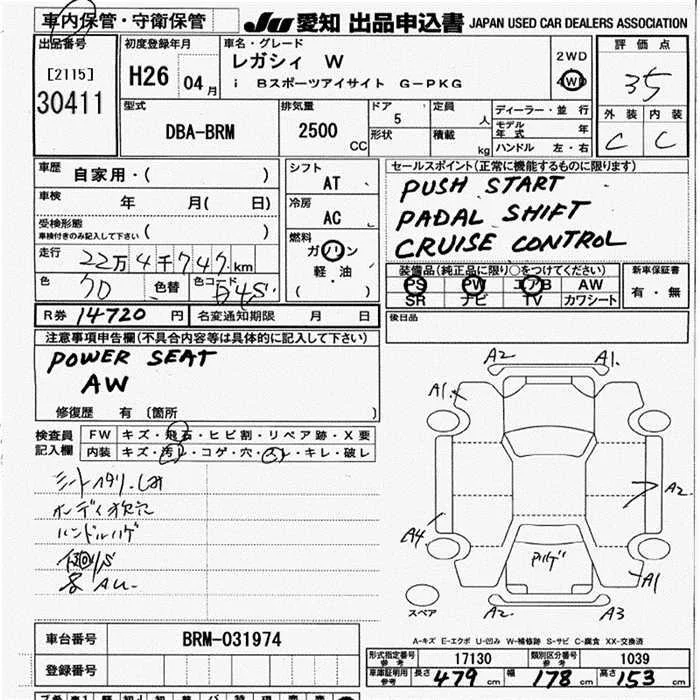 車内保管・守衛保管
JU 愛知 出品申込書 JAPAN USED CAR DEALERS ASSOCIATION
出品番号
[2115]
30411
初度登録年月
H26 04月
車名・グレード
レガシィ W
i Bスポーツアイサイト G-PKG
2WD
4WD
評価点
35
外装 内装
C C
型式
DBA-BRM
排気量
2500 CC
ドア 5
形状
定員 人
積載 kg
ディーラー・並行
モデル年式 年
ハンドル 左・右
車歴 自家用・( )
車検 年 月( 日)
受検形態
車検付きのみ記入して下さい ( )
走行 22万4千747km
色 色替 色コード
シフト
AT
冷房
AC
燃料
ガソリン
軽・油
( )
セールスポイント(正常に機能するものに限ります)
PUSH START
PADAL SHIFT
CRUISE CONTROL
装備品(純正品に限り○をつけてください)
PS PW エアB AW
SR ナビ TV カワシート
新車保証書
有・無
R券 14720円 名変通知期限 月 日
後日品
注意事項申告欄(不具合内容等は具体的に記入して下さい)
POWER SEAT
AW
修復歴 有 〔箇所 〕
検査員記入欄
FW キズ・飛石・ヒビ割・リペア跡・X要
内装 キズ・汚レ・コゲ・穴・スレ・キレ・破レ
ハンドルハゲ
A2 A1.
A1.
A2
A4.
A1
A2. A3
スペア
A-キズ E-エクボ U-凹み W-補修跡 S-サビ C-腐食 XX-交換済
車台番号 BRM-031974
登録番号
形式指定番号 参考 17130 類別区分番号 参考 1039
車庫証明用 参考 長さ 479cm 幅 178cm 高さ 153cm